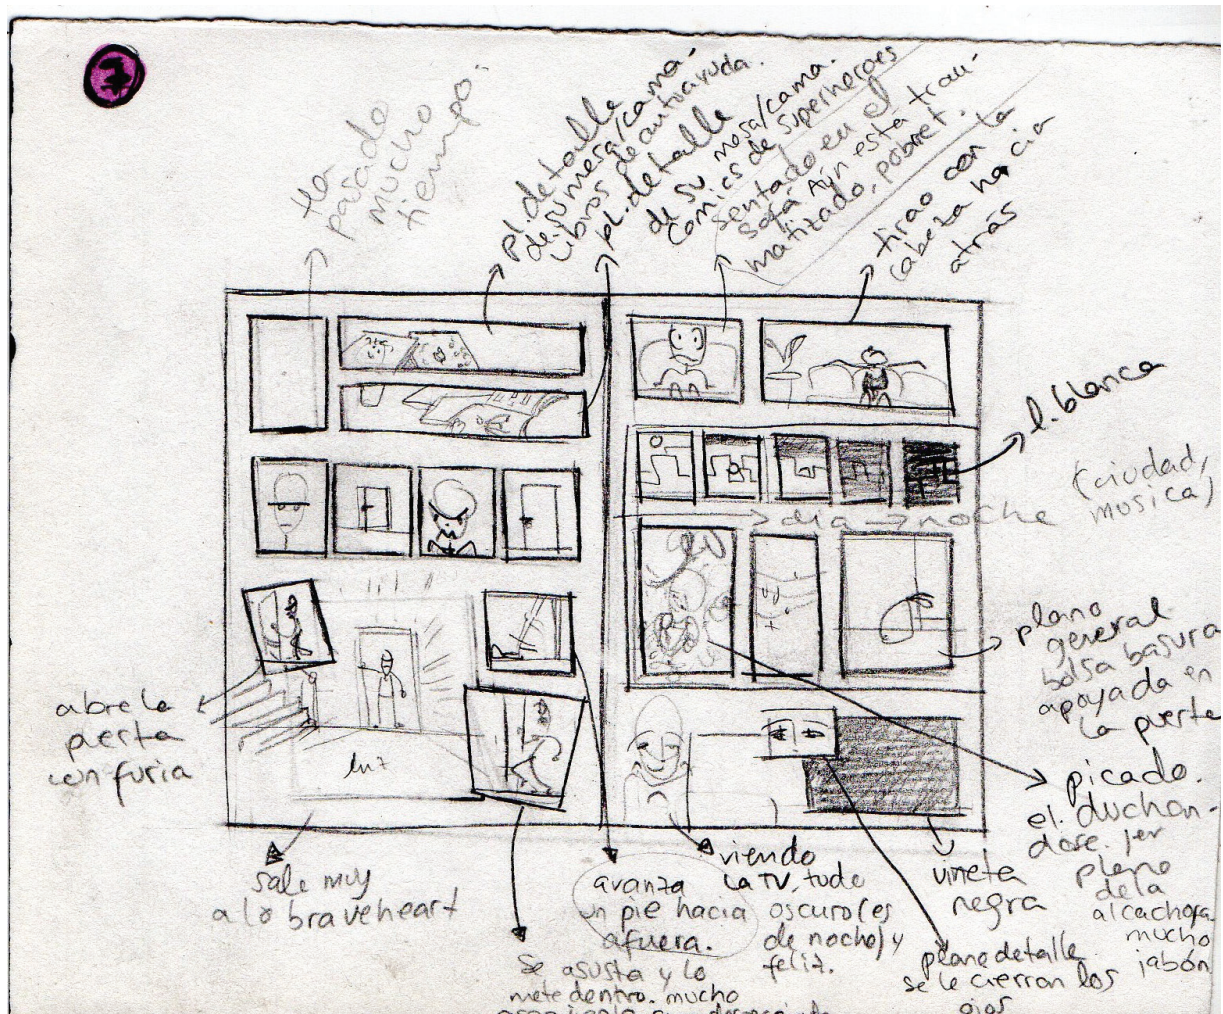 7
Ha
pasado
mucho
tiempo.
pl. detalle
de su mesa/cama.
libros de autoayuda.
pl. detalle
de su mesa/cama.
comics de superheroes
sentado en el
sofá Aún está trau-
matizado, pobret.
tirao con la
cabeza hacia
atrás
l. blanca
(ciudad,
musica)
dia → noche
plano
general
bolsa basura
apoyada en
la puerta
picado.
el duchan-
dose. 1er
plano
de la
alcachofa
mucho
jabón
abre la
puerta
con furia
luz
sale muy
a lo braveheart
avanza
un pie hacia
afuera.
Se asusta y lo
mete dentro. mucho
viendo
la TV, todo
oscuro (es
de noche) y
feliz.
viñeta
negra
plano detalle
se le cierran los
ojos